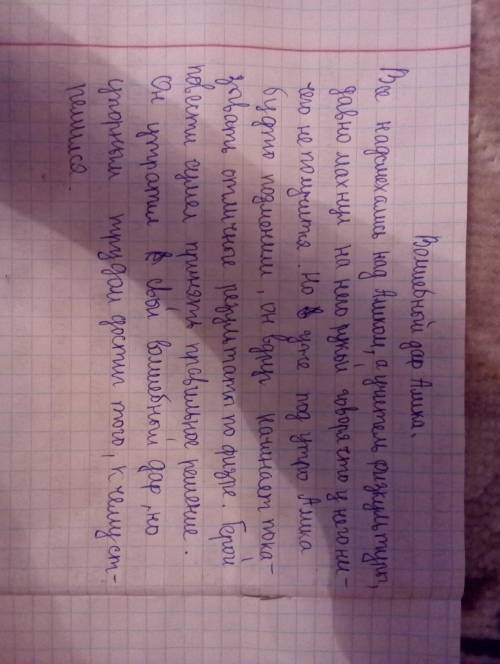 Волшебный дар Алика.
Все надсмехались над Аликом, а учитель физкультуры,
давно махнул на него рукой говоря что у него ни-
чего не получится. Но в уже под утро Алика
будто подменили, он вдруг начинает пока-
зывать отличные результаты по физре. Герой
повести сумел принять правильное решение.
Он утратил в свой волшебный дар, но
упорным трудом достиг того, к чему ст-
ремился.